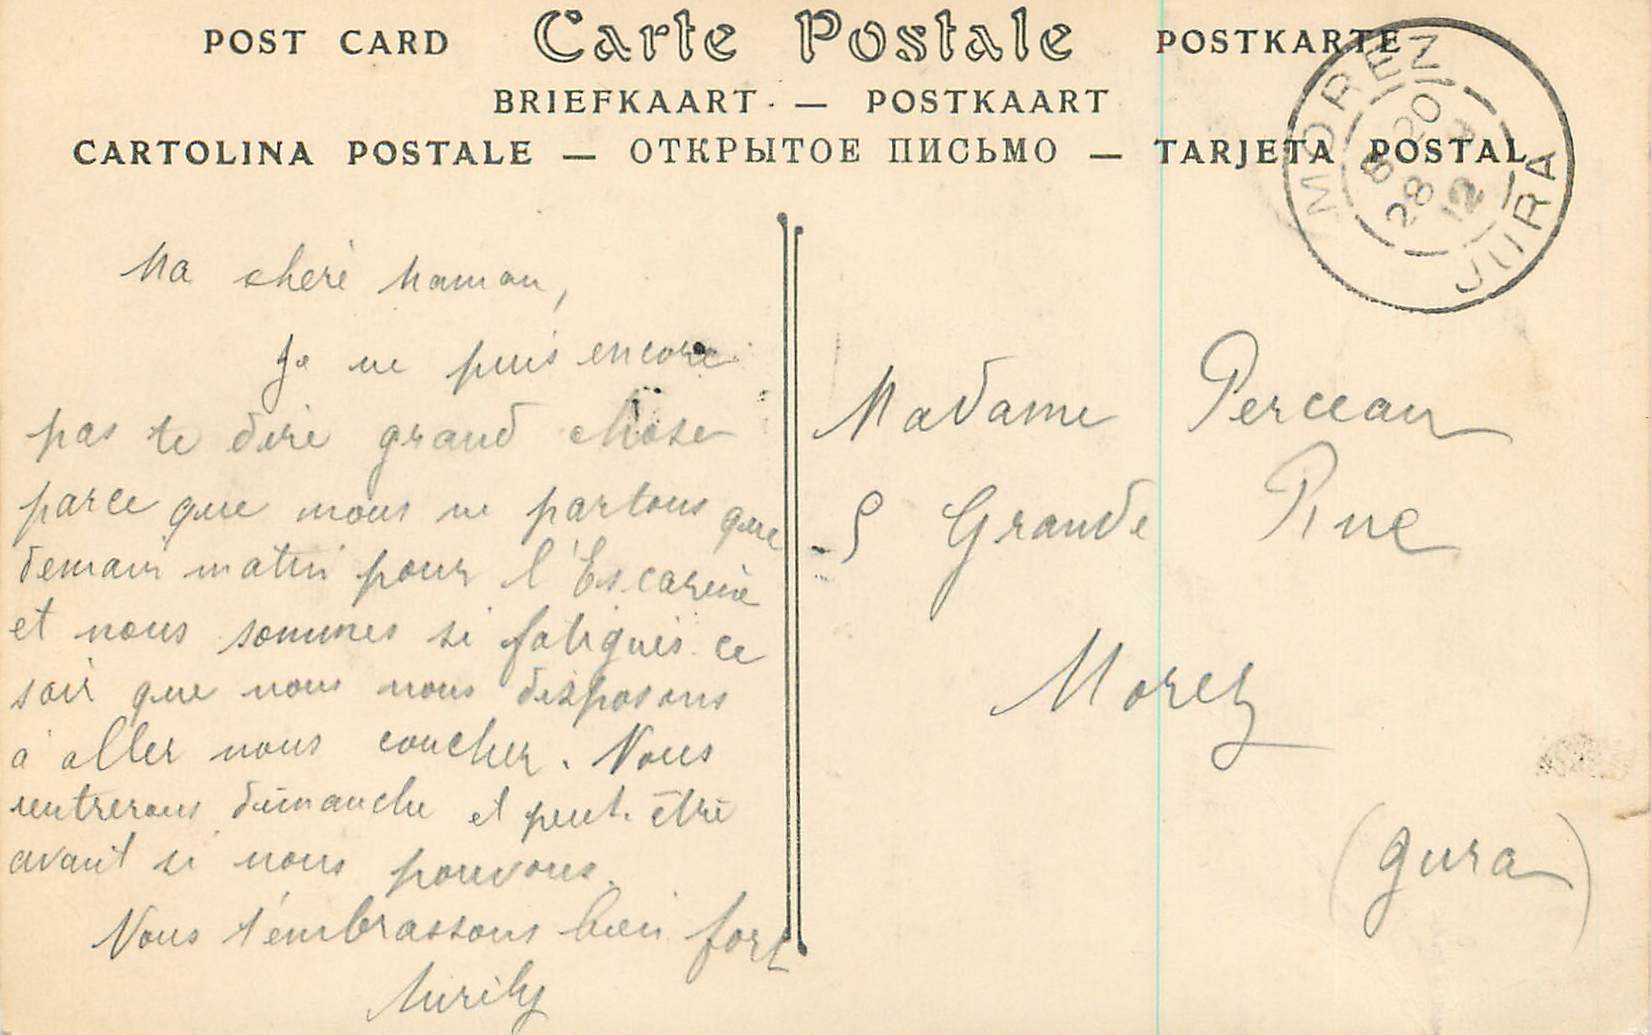 POST CARD Carte Postale POSTKARTE
BRIEFKAART - POSTKAART
CARTOLINA POSTALE — ОТКРЫТОЕ ПИСЬМО — TARJETA POSTAL
MOREZ
8 20
28 2
12
JURA
Ma cheré Maman,
Je ne puis encore
pas te dire grand chose
parce que nous ne partons que
demain matin pour l'Escarène
et nous sommes si fatigués ce
soir que nous nous disposons
à aller nous coucher. Nous
rentrerons dimanche et peut-être
avant si nous pouvons.
Nous t'embrassons bien fort
Madame Perceau
5 Grande Rue
Morez
(Jura)